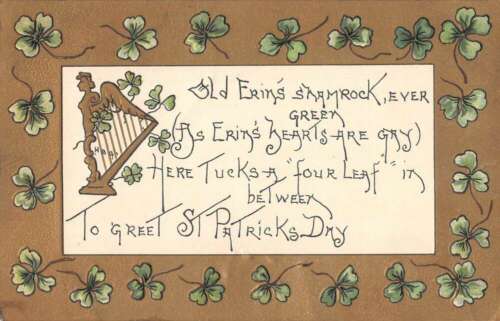 Old Erin's shamrock, ever
green
(As Erin's hearts are gay)
Here Tucks a "four leaf" in
between
To greet St Patricks Day